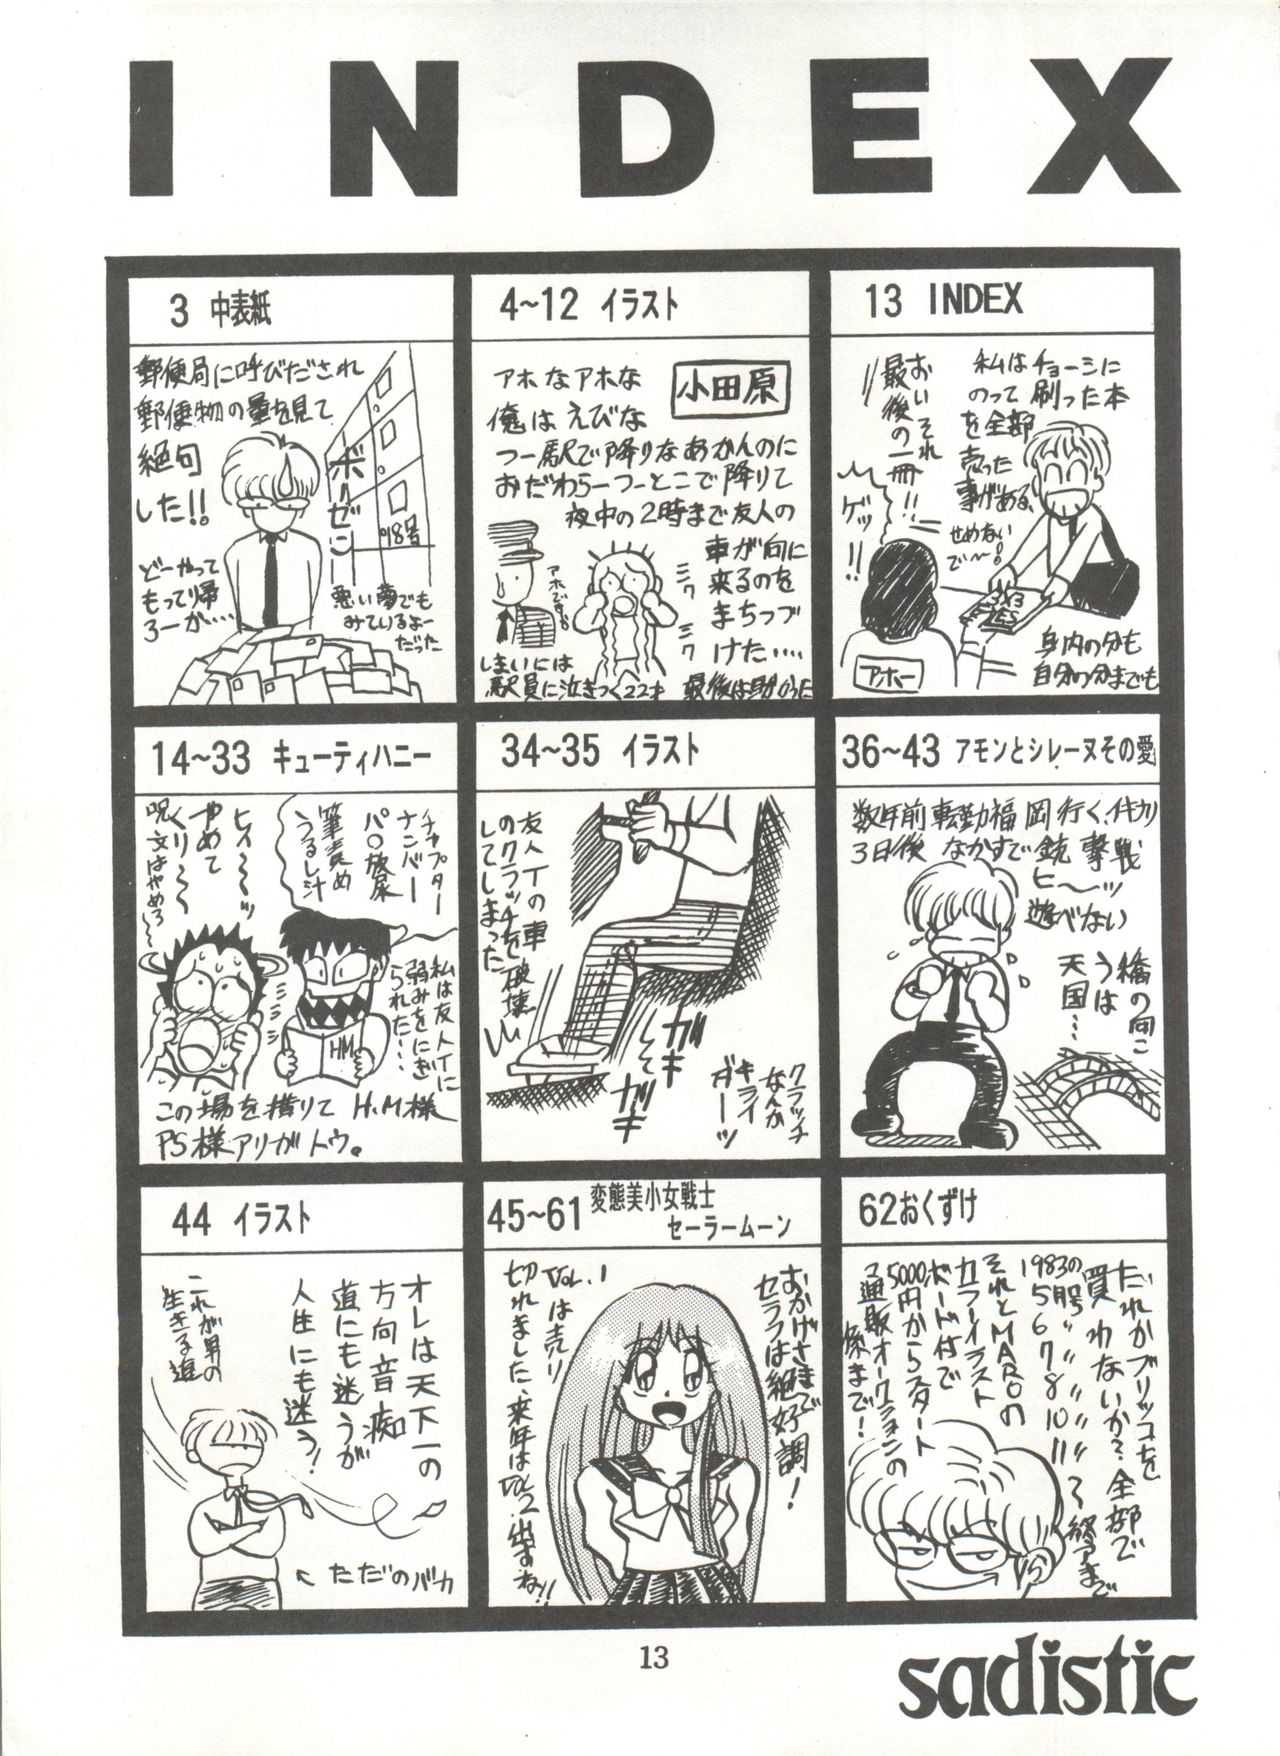 INDEX
3 中表紙
郵便局に呼びだされ
郵便物の量を見て
絶句
した!!
ボーゼン
918号
どーやって
もって帰
ろーか…
悪い夢でも
みているよー
だった
4~12 イラスト
アホなアホな
俺はえびな
小田原
つー駅で降りなあかんのに
おだわらーつーとこで降りて
夜中の2時まで友人の
車が向に
来るのを
まちつづ
けた‥‥
アホですか
ミワ
ミワ
しまいには
駅員に泣きつく22才
最後は助かった
13 INDEX
私はチョーシに
のって刷った本
を全部
売った
事がある、
せめない
で~!
おいそれ
最後の一冊!!
ゲッ!!
アホー
身内の分も
自分の分までも
14~33 キューティハニー
チャプター
ナンバー
パ○放尿
筆責め
うるし汁
ヒィ~~ッ
やめて
くり~~
呪文はやめろ~~
私は友人Tに
弱みをにぎ
られた…
HM
この場を借りてH.M様
PS様アリガトウ。
34~35 イラスト
友人Tの車
のクラッチを破壊
してしまった
ガキ
して
ガキ
クラッチ
なんか
キライ
ガーッ
36~43 アモンとシレーヌその愛
数年前転勤福岡行く、
3日後なかすで銃撃戦
ヒ~ッ
遊べない
橋の向こ
うは
天国…
44 イラスト
オレは天下一の
方向音痴
道にも迷うが
人生にも迷う!
これが男の
生きる道
←ただのバカ
45~61 変態美少女戦士
セーラームーン
おかげさまで
セラフは絶好調!
Vol.1
は売り
切れました、来年は
Vol2.出すね!!
62おくずけ
だれかブリッコを
買わないか?全部で
1983の5月号〃6〃7〃8〃10〃11
それとMAROの
カラーイラスト
ボード付で
5000円からスタート
通販オークションの
13
sadistic